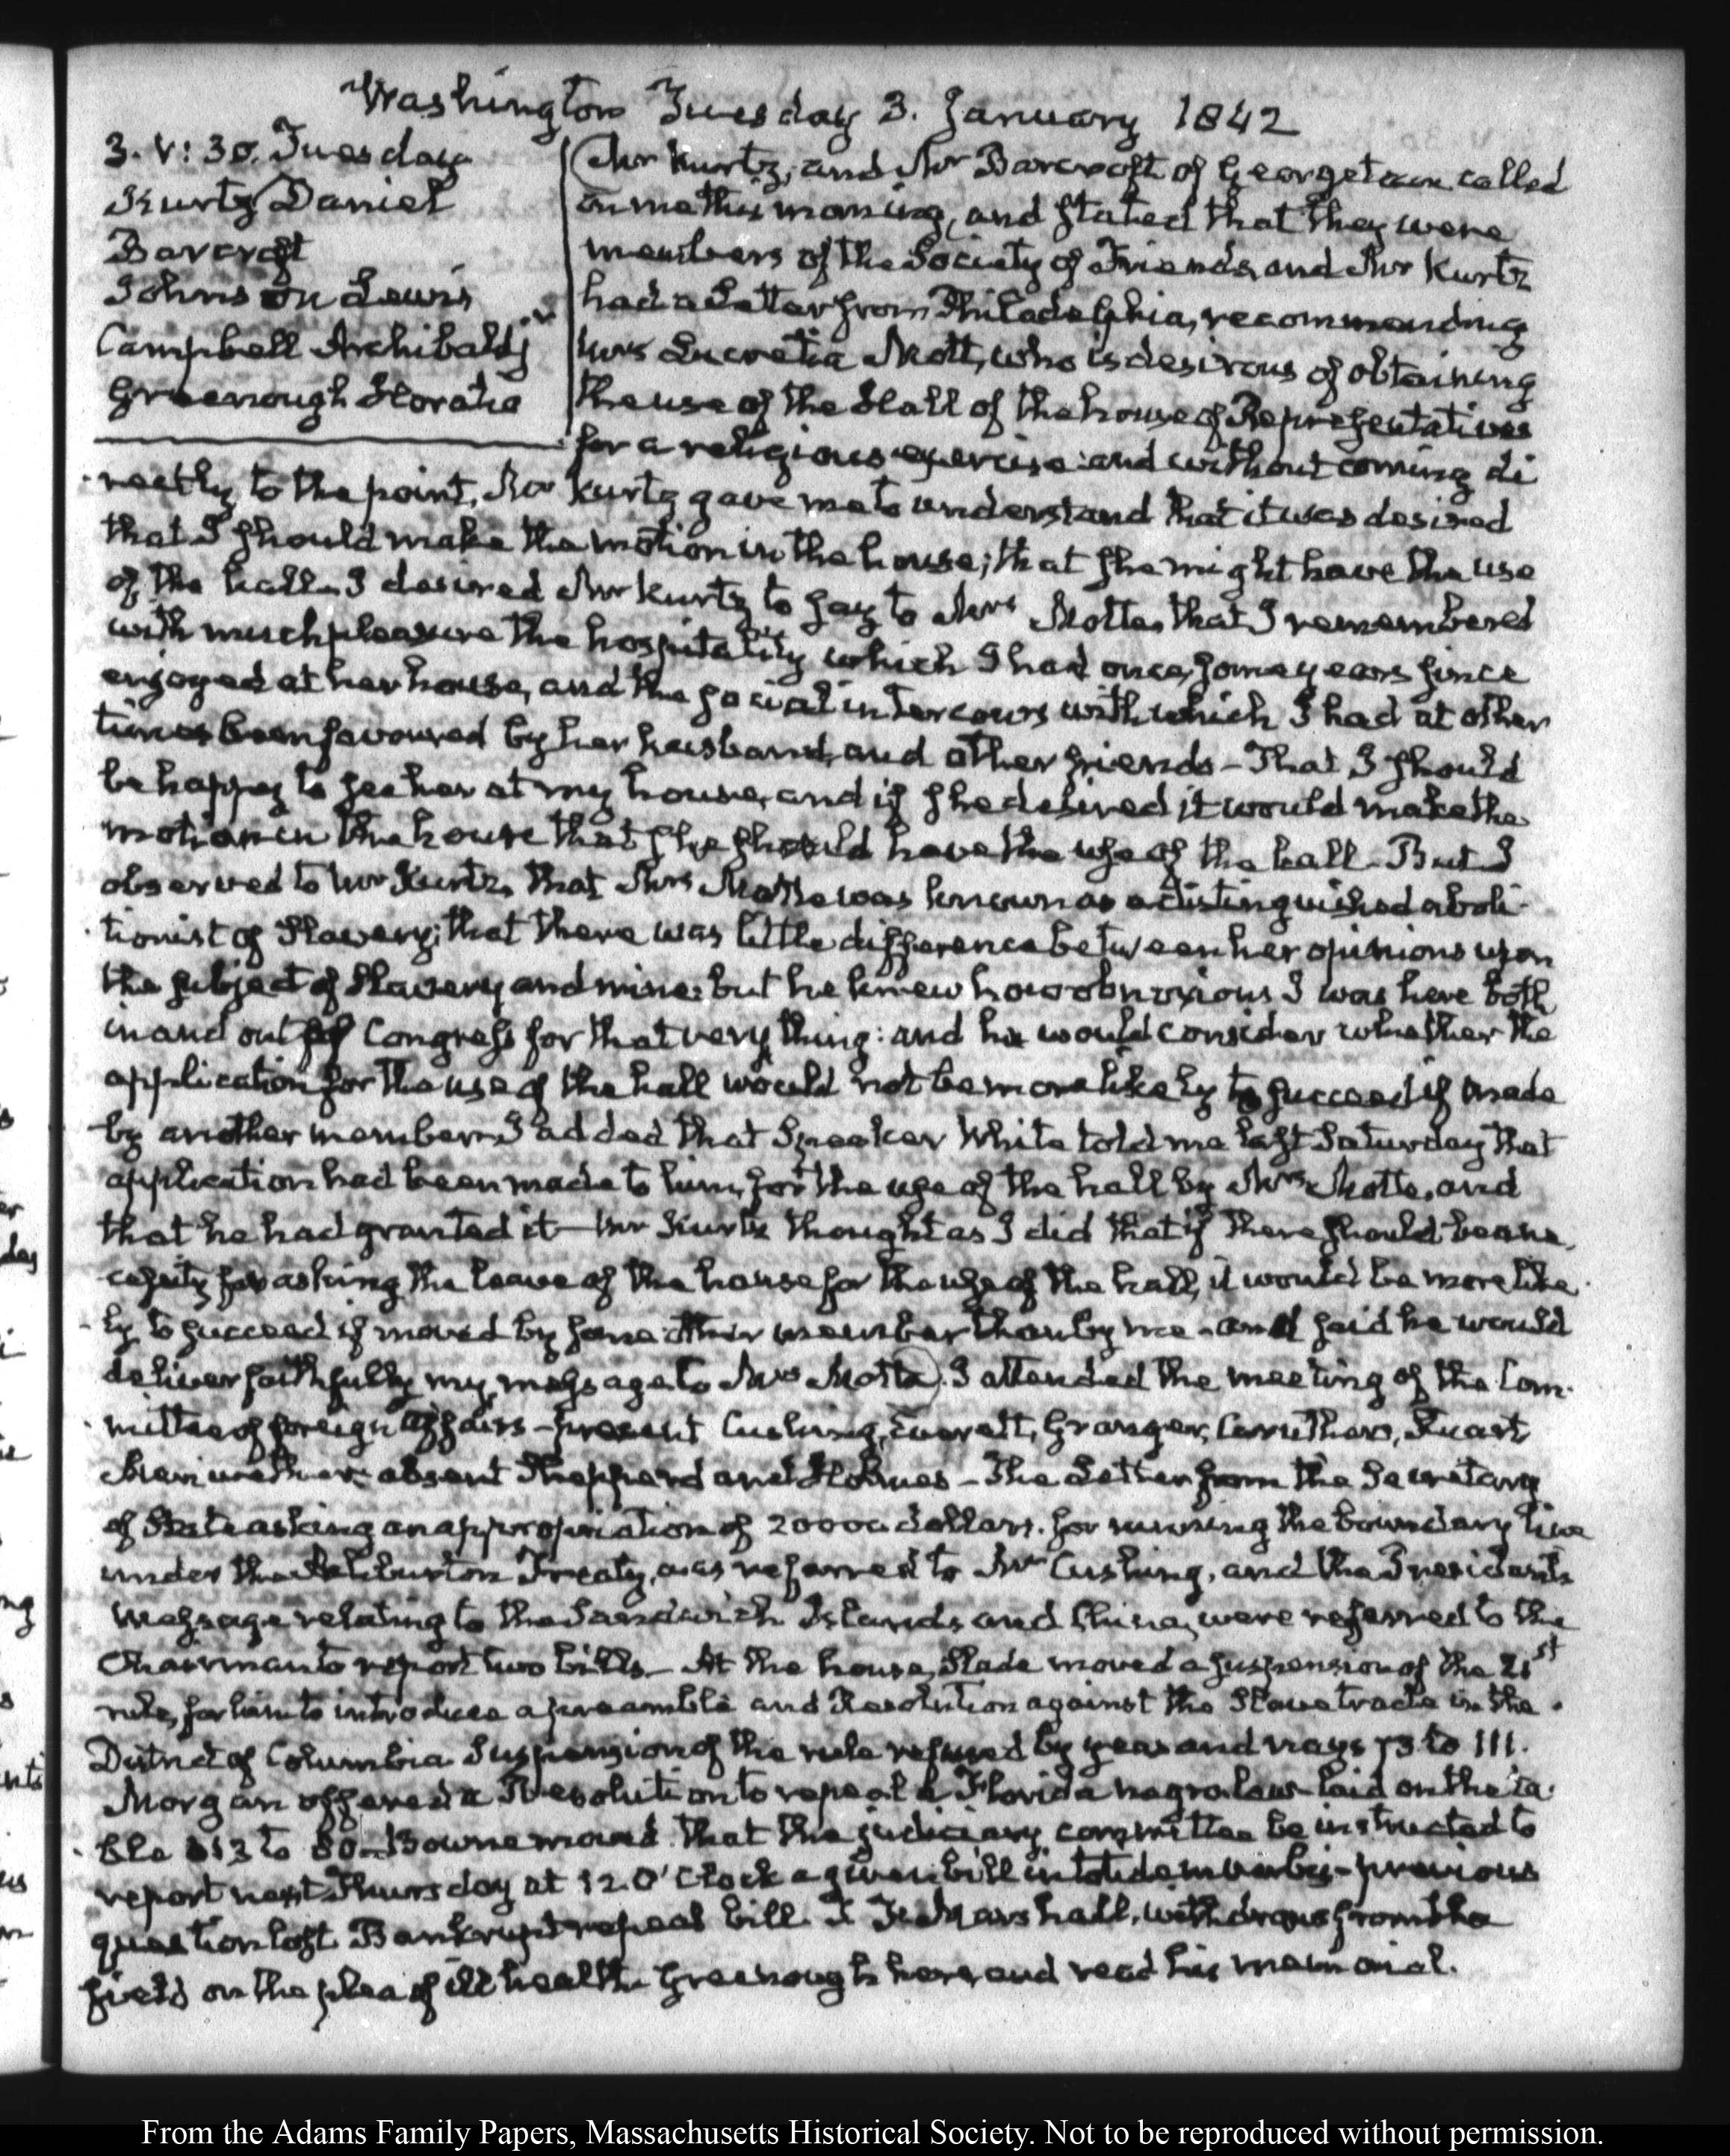 Washington Tuesday 3. January 1842
3. V: 30. Tuesday
Kurtz Daniel
Barcroft
Johnson Lewis
Campbell Archibald jr
Greenough Horatio
Mr Kurtz, and Mr Barcroft of Georgetown called
on me this morning, and stated that they were
members of the Society of Friends, and Mr Kurtz
had a Letter from Philadelphia, recommending
Mrs Lucretia Mott, who is desirous of obtaining
the use of the Hall of the house of Representatives
for a religious exercise: and without coming di
rectly to the point, Mr Kurtz gave me to understand that it was desired
that I should make the motion in the house; that she might have the use
of the hall. I desired Mr Kurtz to say to Mrs Motte, that I remembered
with much pleasure the hospitality which I had once, some years since
enjoyed at her house, and the social intercourse with which I had at other
times been favoured by her husband, and other friends – That I should
be happy to see her at my house, and if she desired it would make the
motion in the house that she should have the use of the hall – But I
observed to Mr Kurtz, that Mrs Motte was known as a distinguished aboli-
tionist of Slavery; that there was little difference between her opinions upon
the subject of Slavery and mine: but he knew how obnoxious I was here both
in and out of Congress for that very thing: and he would consider whether the
application for the use of the hall would not be more likely to succeed if made
by another member – I added that Speaker White told me last Saturday that
application had been made to him, for the use of the hall by Mrs Motte, and
that he had granted it – Mr Kurtz thought as I did that if there should be a ne
cessity for asking the leave of the house for the use of the hall, it would be more like
ly to succeed if moved by some other member than by me – and said he would
deliver faithfully my message to Mrs Motte. I attended the meeting of the Com-
mittee of foreign Affairs – present Cushing, Everett, Granger, Caruthers, Stuart
Meriwether. absent Shepperd and Holmes – The Letter from the Secretary
of State asking an appropriation of 20000 dollars. for running the boundary line
under the Ashburton Treaty, was referred to Mr Cushing, and the President's
Message relating to the Sandwich Islands, and China, were referred to the
Chairman to report two bills – At the house, Slade moved a suspension of the 21st
rule, for him to introduce a preamble and Resolution against the Slave trade in the
District of Columbia Suspension of the rule refused by yeas and nays 73 to 111.
Morgan offered a Resolution to repeal a Florida negro law – laid on the ta-
ble 113 to 80 – Bowne moved that the judiciary committee be instructed to
report next Thursday at 12 O'Clock a given bill in totidem verbis – previous
question lost Bankrupt repeal bill. T. F. Marshall, withdraws from the
field on the plea of ill health – Greenough here, and read his memorial.
From the Adams Family Papers, Massachusetts Historical Society. Not to be reproduced without permission.